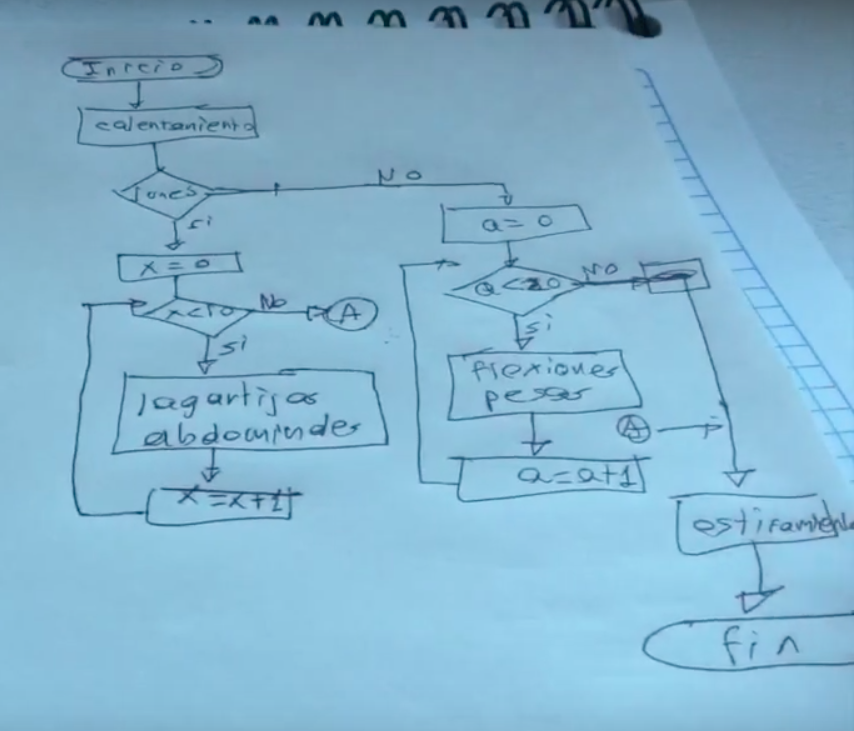 Inicio
calentamiento
lunes
No
si
a = 0
x = 0
No
x<10
No
A
si
si
lagartijas
abdominales
flexiones
pesas
A
a=a+1
x=x+1
estiramiento
fin